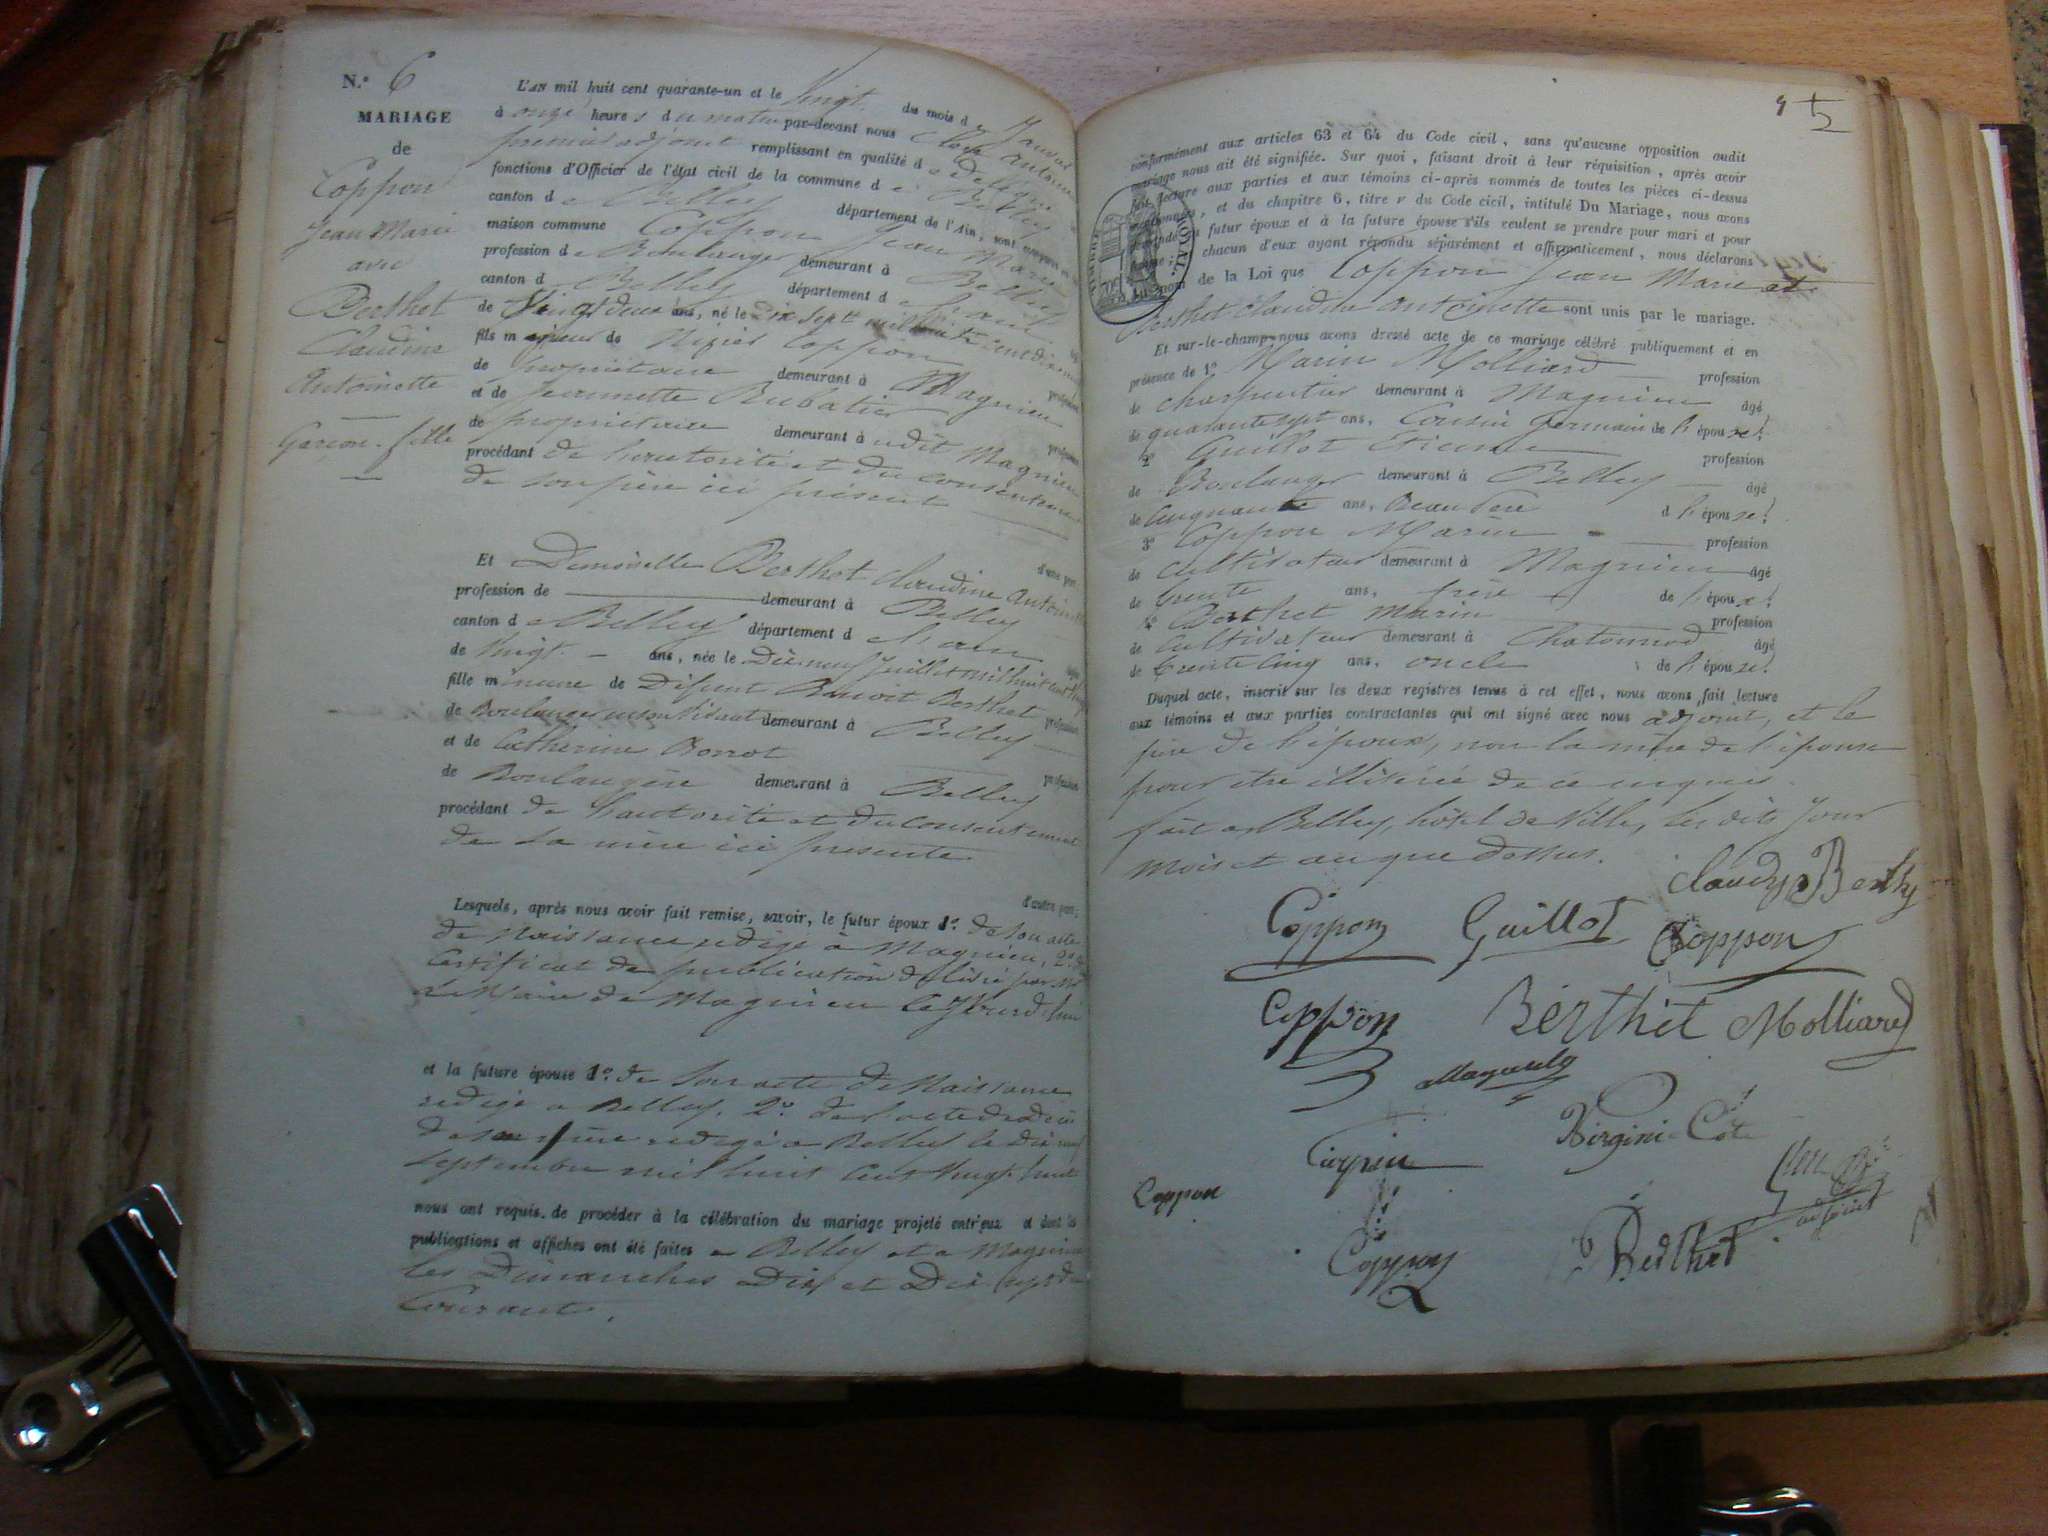 N.º 6
MARIAGE
de
Coppon
Jean Marie
avec
Berthet
Claudine
Antoinette
Garçon. fille
L'AN mil huit cent quarante-un et le Vingt du mois de Janvier
à onze heures du matin par-devant nous
premier adjoint remplissant en qualité de délégué
fonctions d'Officier de l'état civil de la commune de Belley
canton de Belley département de l'Ain, sont
maison commune Coppon Jean Marie
profession de Boulanger demeurant à Belley
canton de Belley département de l'ain
de Vingt deux ans, né le dix sept mil huit cent dix
fils majeur de Nizier Coppon
de propriétaire demeurant à Magnieu profession
et de Jeannette Rubatier
de propriétaire demeurant à udit Magnieu
procédant de l'autorité et du consentement
de son père ici présent
d'une part
Et Demoiselle Berthet Claudine Antoinette
profession de demeurant à Belley
canton de Belley département de l'ain
de Vingt ans, née le Dix neuf Juillet mil huit cent vingt
fille mineure de Défunt Benoit Berthet
de Boulanger demeurant à Belley
et de Catherine Borrot
de Boulangère demeurant à Belley profession
procédant de l'autorité et du consentement
de sa mère ici présente
d'autre part;
Lesquels, après nous avoir fait remise, savoir, le futur époux 1º. de son acte
de Naissance redigé à Magnieu, 2º. du
Certificat de publication délivré par Mr
Le Maire de Magnieu
et la future épouse 1º. de son acte de Naissance
redigé a Belley, 2º. de l'acte de décès
de son père redigé a Belley le dix neuf
septembre mil huit cent vingt huit
nous ont requis de procéder à la célébration du mariage projeté entr'eux et dont les
publications et affiches ont été faites a Belley et a Magnieu
les Dimanches Dix et Dix sept du
Courant.
9 1/2
conformément aux articles 63 et 64 du Code civil, sans qu'aucune opposition audit
mariage nous ait été signifiée. Sur quoi, faisant droit à leur réquisition, après avoir
fait lecture aux parties et aux témoins ci-après nommés de toutes les pièces ci-dessus
mentionnées, et du chapitre 6, titre v du Code civil, intitulé Du Mariage, nous avons
demandé au futur époux et à la future épouse s'ils veulent se prendre pour mari et pour
femme: chacun d'eux ayant répondu séparément et affirmativement, nous déclarons
au nom de la Loi que Coppon Jean Marie et
Berthet Claudine Antoinette sont unis par le mariage.
TIMBRE ROYAL
Et sur-le-champ nous avons dressé acte de ce mariage célébré publiquement et en
présence de 1º Marin Molliard profession
de charpentier demeurant à Magnieu âgé
de quarante sept ans, Cousin Germain de l'épouse.
2º Guillot Etienne profession
de Boulanger demeurant à Belley âgé
de Cinquante ans, Beau Père d l'épouse.
3º Coppon Marin profession
de cultivateur demeurant à Magnieu âgé
de trente ans, frère de l'époux.
4º Berthet Marin profession
de Cultivateur demeurant à Chatonnod âgé
de trente cinq ans, oncle de l'épouse.
Duquel acte, inscrit sur les deux registres tenus à cet effet, nous avons fait lecture
aux témoins et aux parties contractantes qui ont signé avec nous adjoint, et le
père de l'époux, non la mère de l'épouse
pour être illitérée de ce enquis.
fait a Belley, hôtel de Ville, les dits Jour
mois et an que dessus.
Coppon Guillot Coppon
Coppon Berthet Molliard
Virginie Cote
adjoint
Coppon
Coppon Berthet